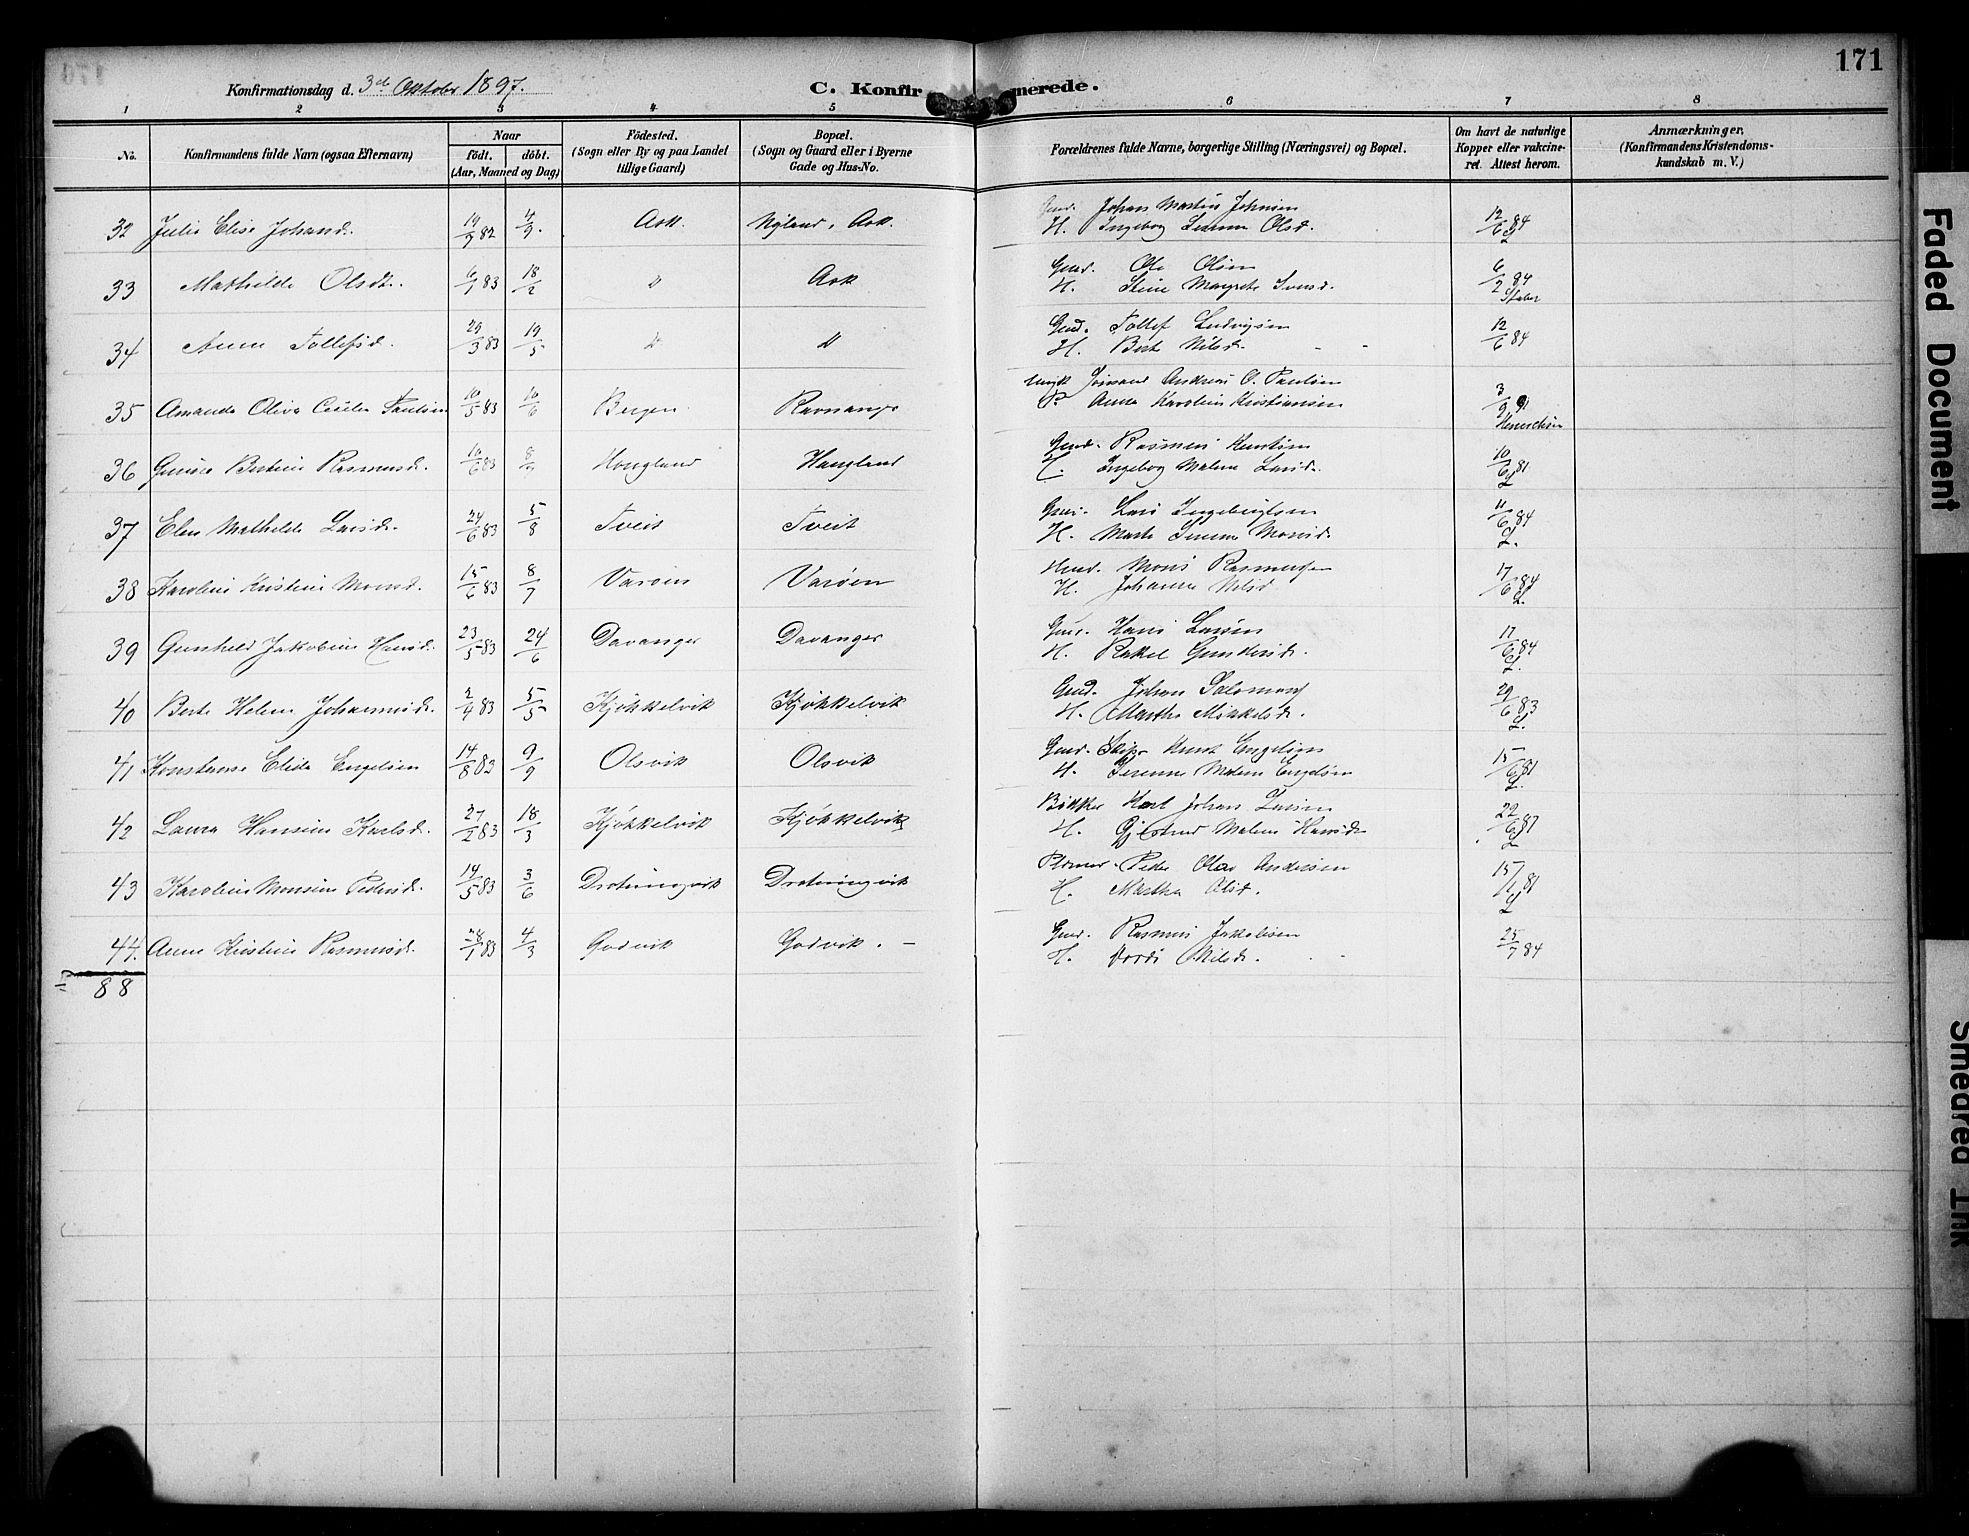 171
Konfirmationsdag d. 3die Oktober 1897.
C. Konfirmerede.
1 2 3 4 5 6 7 8
No.
Konfirmandens fulde Navn (ogsaa Efternavn)
Naar
født. døbt.
(Aar, Maaned og Dag)
Födested.
(Sogn eller By og paa Landet
tillige Gaard)
Bopæl.
(Sogn og Gaard eller i Byerne
Gade og Hus-No.
Forældrenes fulde Navne, borgerlige Stilling (Næringsvei) og Bopæl.
Om havt de naturlige
Kopper eller vakcine-
ret. Attest herom.
Anmærkninger.
(Konfirmandens Kristendoms-
kundskab m. V.)
32 Julie Elise Johansd. 19/7 82 4/9. Ask. Nyland, Ask. Gmd. Johan Martin Johnsen 12/6 84
H. Ingeborg Serine Olsd.
33 Mathilde Olsdt. 6/1 83 18/2 " Ask Gmd. Ole Olsen 6/2 84
H. Stine Margrete Iversd.
34 Anna Tollefsd. 29/3 83 19/5 " " Gmd. Tollef Ludvigsen 12/6 84
H. Berte Nilsd.
35 Amanda Oliva Cecilie Paulsen 10/5 83 16/6 Bergen. Ravnanger Ungk. Sømand Andreas O. Paulsen 3/9 91
P. Anna Karoline Kristiansen Henrichsen
36 Gurine Bertine Rasmusd. 10/6 83 8/7 Hougland Haugland Gmd. Rasmus Knutsen 10/6 81
H. Ingeborg Malene Larsd.
37 Elen Mathilde Larsdt. 24/6 83 5/8 Tveit Tveit Gmd. Lars Ingebrigtsen 11/6 84
H. Marte Serine Monsd. L.
38 Karoline Kristine Monsd. 15/6 83 8/7 Varøen Varøen Mons Rasmussen 17/6 84
H. Johanna Nilsd. L.
39 Gunhild Jakobine Hansd. 23/5 83 24/6 Davanger Davanger Gmd. Hans Larsen 17/6 84
H. Rakel Gundersd. L.
40 Berte Helene Johannesd. 2/4 83 5/5 Kjøkkelvik Kjøkkelvik Gmd. Johan Salomons 29/6 83
H. Marthe Mikkelsd. L.
41 Konstanse Elida Engelsen 14/8 83 9/9 Olsvik Olsvik Gmd. Skipr. Knut Engelsen 15/6 81
H. Serine Malene Engelsen L.
42 Laura Hansine Karlsd. 27/2 83 18/3 Kjøkkelvik Kjøkkelvik Bøkker Karl Johan Larsen 22/6 87
H. Gjertrud Malene Hansd. L
43 Karoline Monsine Pedersd. 14/5 83 3/6 Drotningvik Drotningvik Peder Olav Andersen 15/ 81
H. Martha Olsd. L
44. Anne Kristine Rasmusd. 28/1 83 4/3 Godvik Godvik. - Gmd. Rasmus Jakobsen 25/7 84
H. Nilsd.
88
Faded Document
Smeared Ink